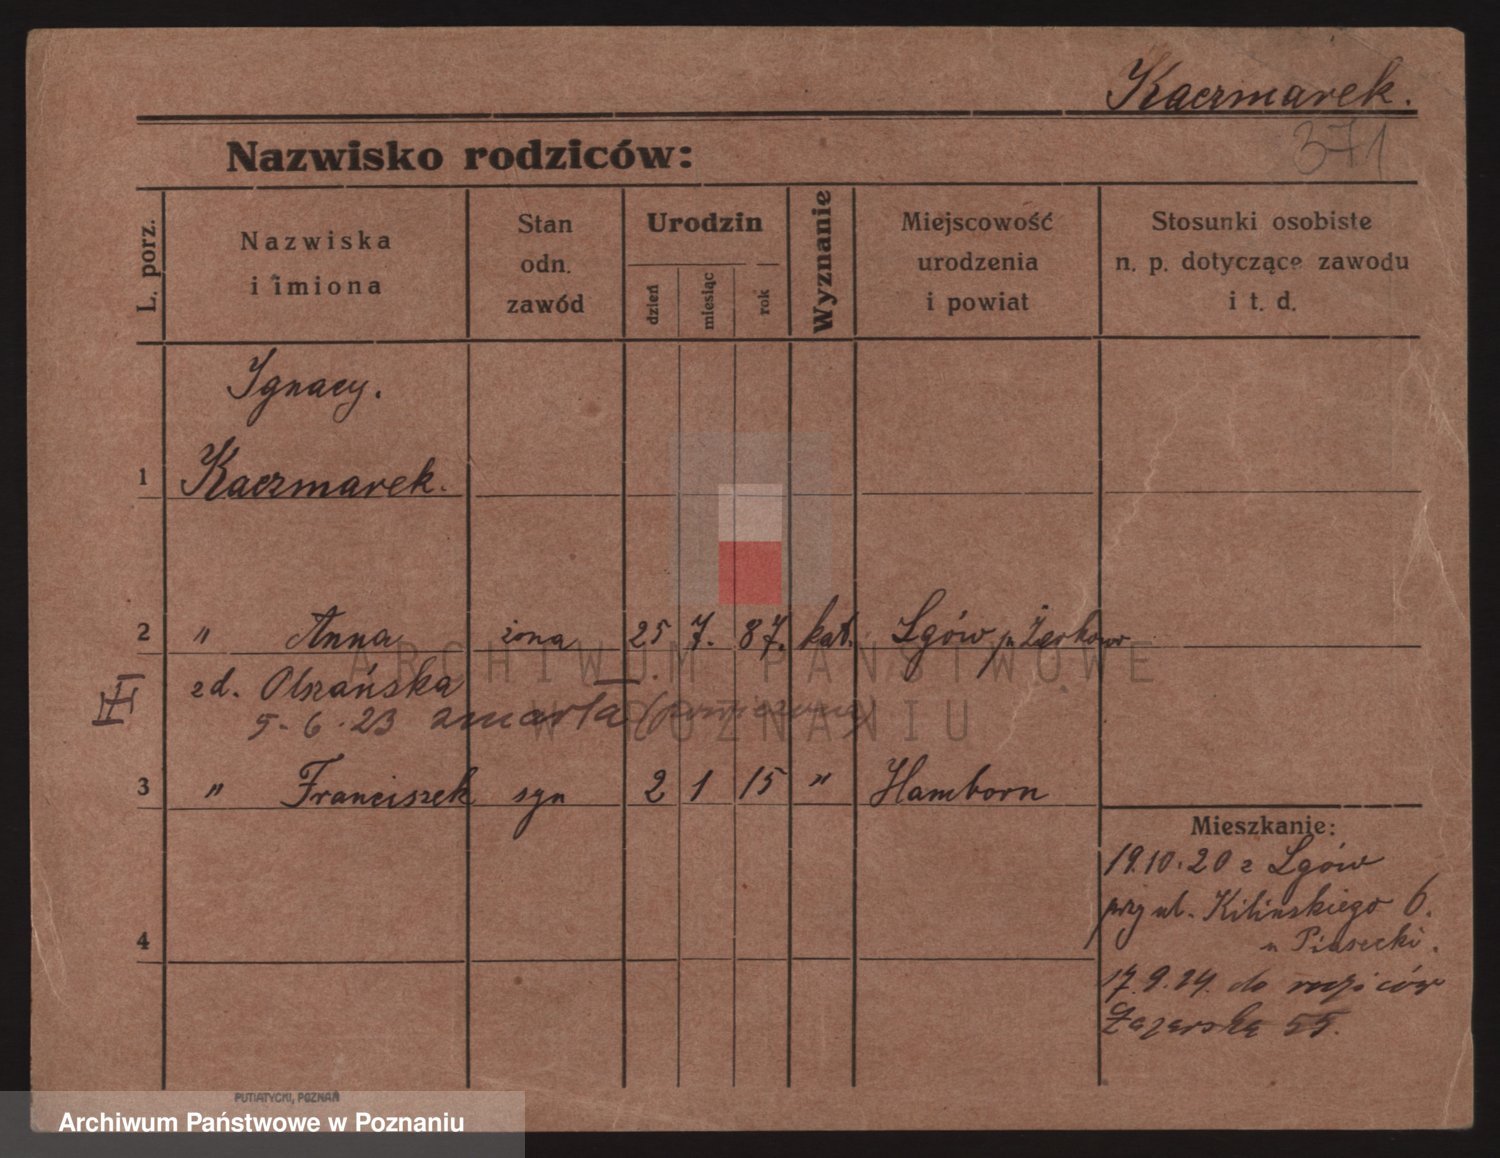 Kaczmarek.
371
Nazwisko rodziców:
L. porz.
Nazwiska
i imiona
Stan
odn.
zawód
Urodzin
dzień
miesiąc
rok
Wyznanie
Miejscowość
urodzenia
i powiat
Stosunki osobiste
n. p. dotyczące zawodu
i t. d.
Ignacy.
1 Kaczmarek.
2 " Anna żona 25. 7. 87. kat. Lgów p. Żerkow
zd. Olszańska
5-6-23 zmarła
3 " Franciszek syn 2 1 15 " Hamborn
Mieszkanie:
19.10.20 z Lgów
przy ul. Kilinskiego 6.
u Piasecki.
4
17.9.24. do rodziców
55.
ARCHIWUM PAŃSTWOWE
W POZNANIU
PUTIATYCKI, POZNAŃ
Archiwum Państwowe w Poznaniu